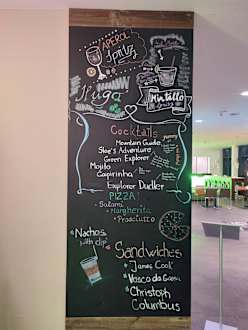 APEROL
Spritz
Hugo
Mintello
Cocktails
Mountain Guide
Shoe's Adventure
Green Explorer
Mojito
Caipirinha
Explorer Dudler
PIZZA
- Salami
- Margherita
- Prosciutto
* Nachos
with dip
Sandwiches
* James Cook
* Vasco da Gama
* Christoph
Columbus